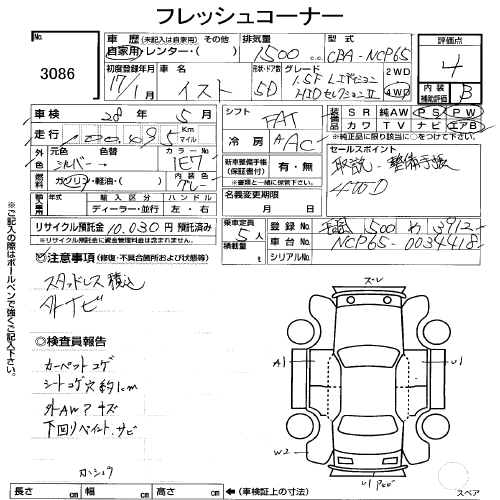 フレッシュコーナー
3086
車歴 (未記入は自家用) その他 排気量 型式 評価点
自家用・レンター・( ) 1500 CBA-NCP65 4
初度登録年月 車名 形状・ドア数 グレード 2WD 内装 補助評価
17/1月 イスト 5D 1.5F Lエディション HIDセレクションII 4WD B
車検 28年 5月 シフト FAT 装備品 SR 純AW PS PW
カワ TV ナビ エアB
走行 Km マイル 冷房 AAC ※純正品に限り該当に○をつける事
外 元色 色替 カラーNo
シルバー 1E7
新車整備手帳 (保証書付) 有・無
※書類と一緒に保管して下さい。
セールスポイント
取説・整備手帳
4WD
燃料 ガソリン・軽油・( ) 内装色 グレー
輸入車用 輸入区分 ハンドル
ディーラー・並行 左・右
名義変更期限
月 日
リサイクル預託金 10.030円 預託済み
※リサイクル預託金に資金管理料金は含みません。
乗車定員 5人
積載量 t
登録No 500 わ 3912
車台No NCP65-0034418
シリアルNo
◎注意事項 (修復・不具合箇所および状態など)
スタッドレス積込
外ナビ
◎検査員報告
カーペットコゲ
シートコゲ穴約1cm
外AWアキズ
下回りペイント、サビ
スレ
A1
U1
W2
スペア
長さ cm 幅 cm 高さ cm ←(車検証上の寸法)
※ご記入の際はボールペンで強くご記入下さい。